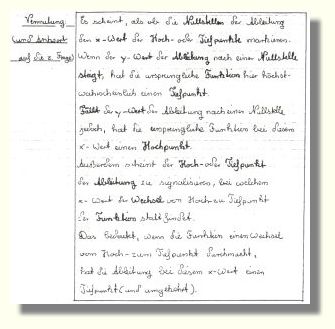 Vermutung
(und Antwort
auf die 2. Frage)
Es scheint, als ob die Nullstellen der Ableitung
den x-Wert der Hoch- oder Tiefpunkte markieren.
Wenn der y-Wert der Ableitung nach einer Nullstelle
steigt, hat die ursprüngliche Funktion hier höchst-
wahrscheinlich einen Tiefpunkt.
Fällt der y-Wert der Ableitung nach einer Nullstelle
jedoch, hat die ursprüngliche Funktion bei diesem
x-Wert einen Hochpunkt.
Außerdem scheint der Hoch- oder Tiefpunkt
der Ableitung zu signalisieren, bei welchem
x-Wert der Wechsel von Hoch- zu Tiefpunkt
der Funktion stattfindet.
Das bedeutet, wenn die Funktion einen Wechsel
vom Hoch- zum Tiefpunkt durchmacht,
hat die Ableitung bei diesem x-Wert einen
Tiefpunkt (und umgekehrt).